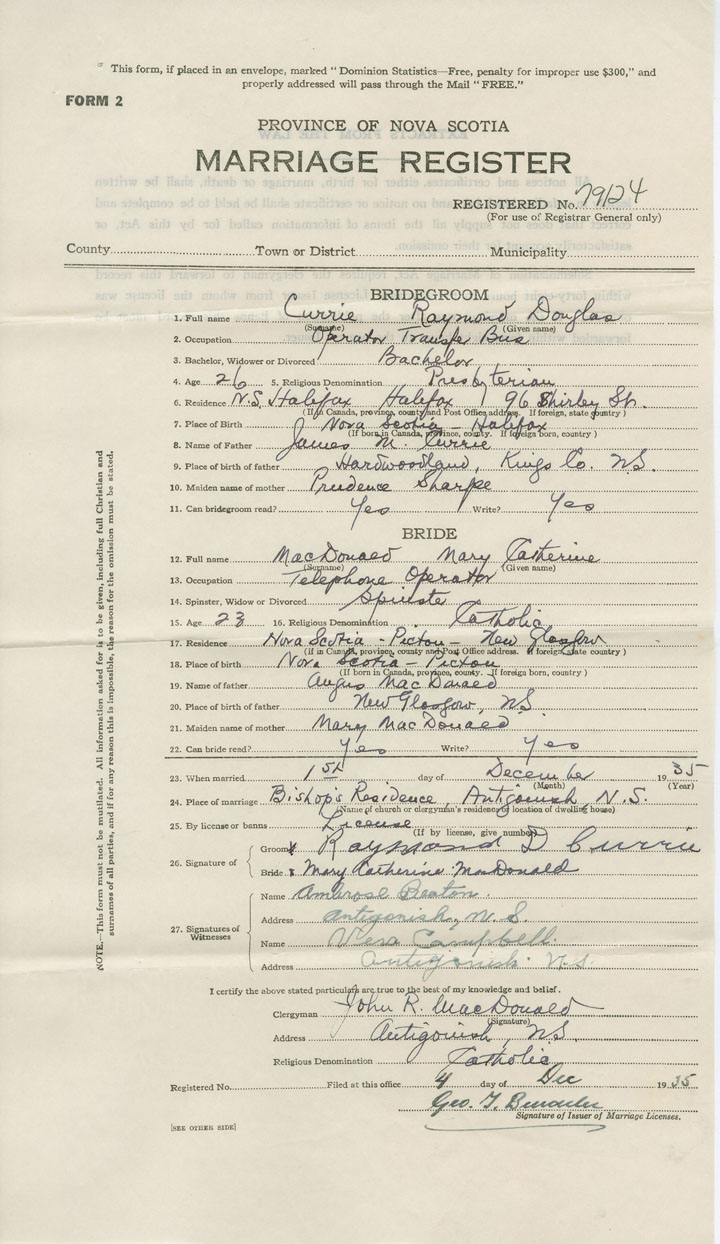 This form, if placed in an envelope, marked "Dominion Statistics—Free, penalty for improper use $300," and
properly addressed will pass through the Mail "FREE."
FORM 2
PROVINCE OF NOVA SCOTIA
MARRIAGE REGISTER
REGISTERED No. 79124
(For use of Registrar General only)
County Town or District Municipality
BRIDEGROOM
1. Full name Currie Raymond Douglas
(Surname) (Given name)
2. Occupation Operator Transfer Bus
3. Bachelor, Widower or Divorced Bachelor
4. Age 26 5. Religious Denomination Presbyterian
6. Residence N.S. Halifax Halifax 96 Shirley St.
(If in Canada, province, county and Post Office address. If foreign, state country)
7. Place of Birth Nova Scotia - Halifax
(If born in Canada, province, county. If foreign born, country)
8. Name of Father James M. Currie
9. Place of birth of father Hardwoodland, Kings Co. N.S.
10. Maiden name of mother Prudence Sharpe
11. Can bridegroom read? Yes Write? Yes
BRIDE
12. Full name MacDonald Mary Catherine
(Surname) (Given name)
13. Occupation Telephone Operator
14. Spinster, Widow or Divorced Spinster
15. Age 23 16. Religious Denomination Catholic
17. Residence Nova Scotia - Pictou - New Glasgow
(If in Canada, province, county and Post Office address. If foreign, state country)
18. Place of birth Nova Scotia - Pictou
(If born in Canada, province, county. If foreign born, country)
19. Name of father Angus MacDonald
20. Place of birth of father New Glasgow, N.S.
21. Maiden name of mother Mary MacDonald
22. Can bride read? Yes Write? Yes
23. When married 1st day of December 1935
(Month) (Year)
24. Place of marriage Bishop's Residence, Antigonish, N.S.
(Name of church or clergyman's residence or location of dwelling house)
25. By license or banns License
(If by license, give number)
26. Signature of
Groom Raymond D Currie
Bride Mary Catherine MacDonald
27. Signatures of Witnesses
Name Ambrose Beaton.
Address Antigonish, N.S.
Name Vera Campbell.
Address Antigonish. N.S.
I certify the above stated particulars are true to the best of my knowledge and belief.
Clergyman John R. MacDonald
(Signature)
Address Antigonish, N.S.
Religious Denomination Catholic
Registered No. Filed at this office 4 day of Dec 1935
Geo. T.
Signature of Issuer of Marriage Licenses.
[SEE OTHER SIDE]
NOTE.—This form must not be mutilated. All information asked for is to be given, including full Christian and
surnames of all parties, and if for any reason this is impossible, the reason for the omission must be stated.